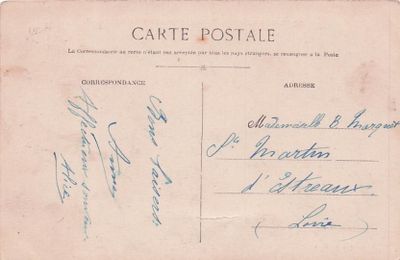 CARTE POSTALE
La Correspondance au verso n'étant pas acceptée par tous les pays étrangers, se renseigner à la Poste
CORRESPONDANCE
ADRESSE
Bons baisers
Affectueux
Alice
Mademoiselle B Marquet
Ste Martin
d'Estreaux
(Loire)